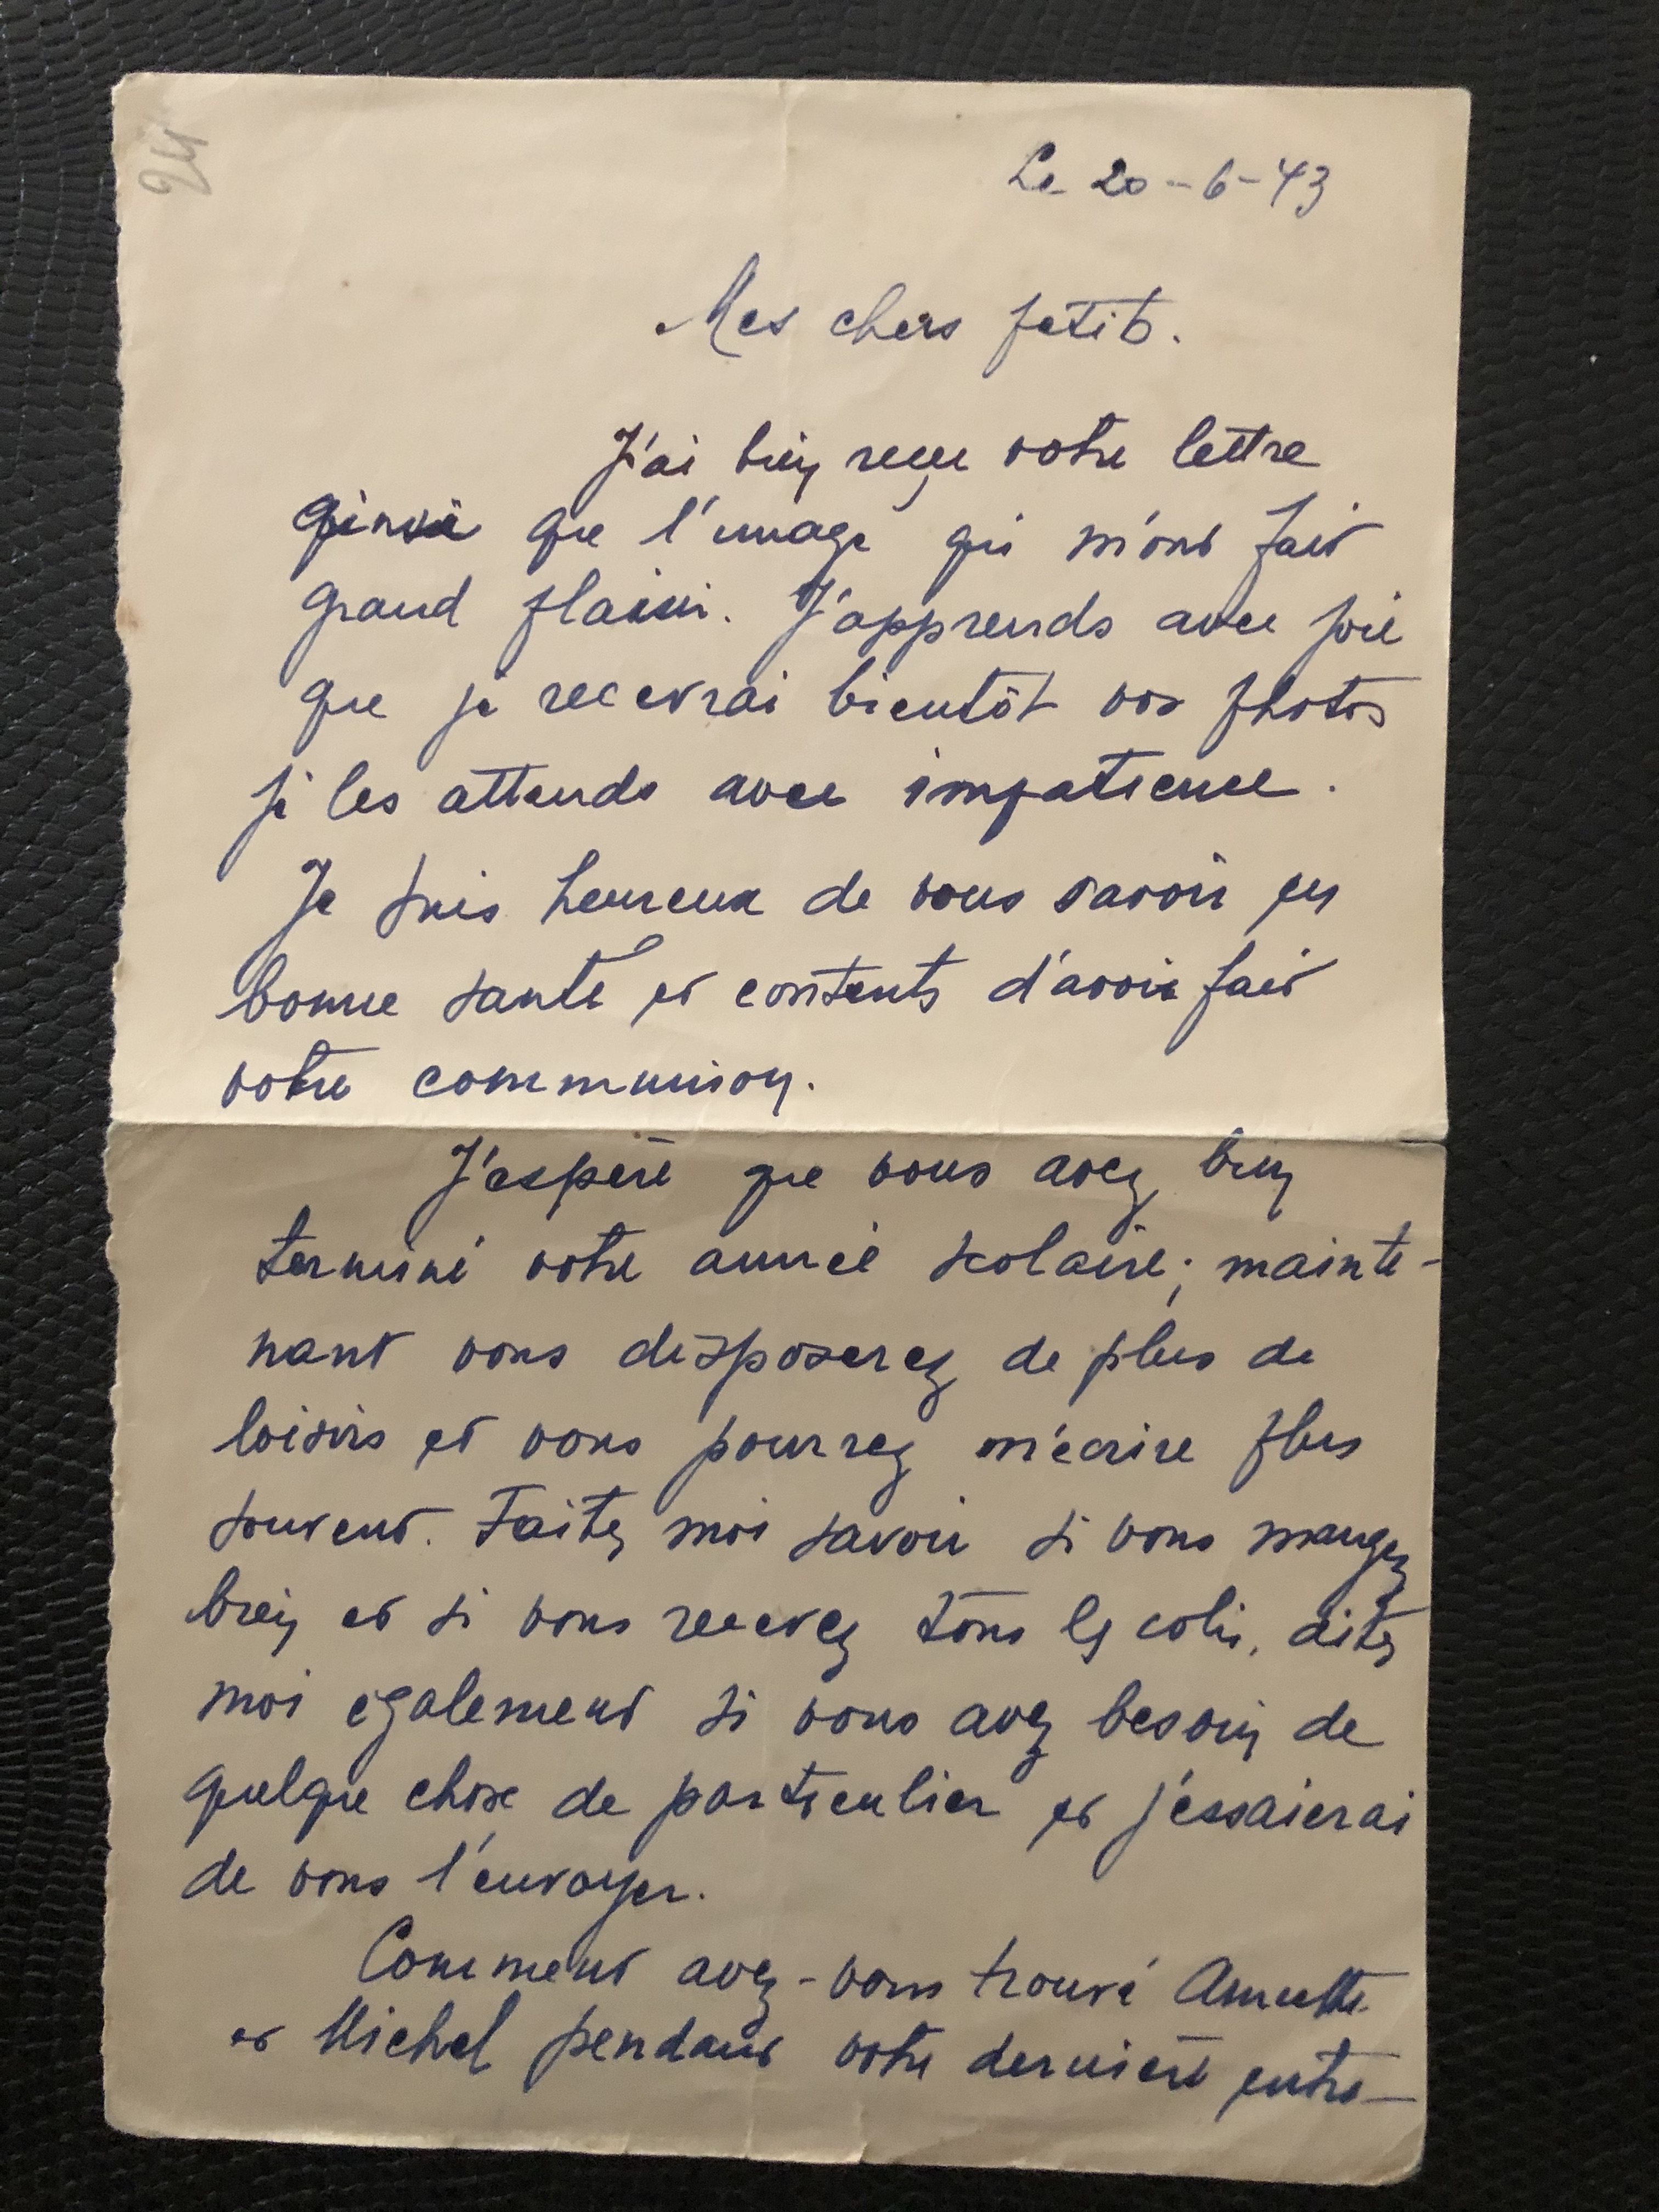 24
Le 20-6-43
Mes chers petits.
J'ai bien reçu votre lettre
ainsi que l'image qui m'ont fait
grand plaisir. J'apprends avec joie
que je recevrai bientôt vos photos
je les attends avec impatience.
Je suis heureux de vous savoir en
bonne santé et contents d'avoir fait
votre communion.
J'espère que vous avez bien
terminé votre année scolaire; mainte-
nant vous disposerez de plus de
loisirs et vous pourrez m'écrire plus
souvent. Faites moi savoir si vous mangez
bien et si vous recevez tous les colis, dites
moi également si vous avez besoin de
quelque chose de particulier et j'essaierai
de vous l'envoyer.
Comment avez-vous trouvé Annette
et Michel pendant votre dernière entre-